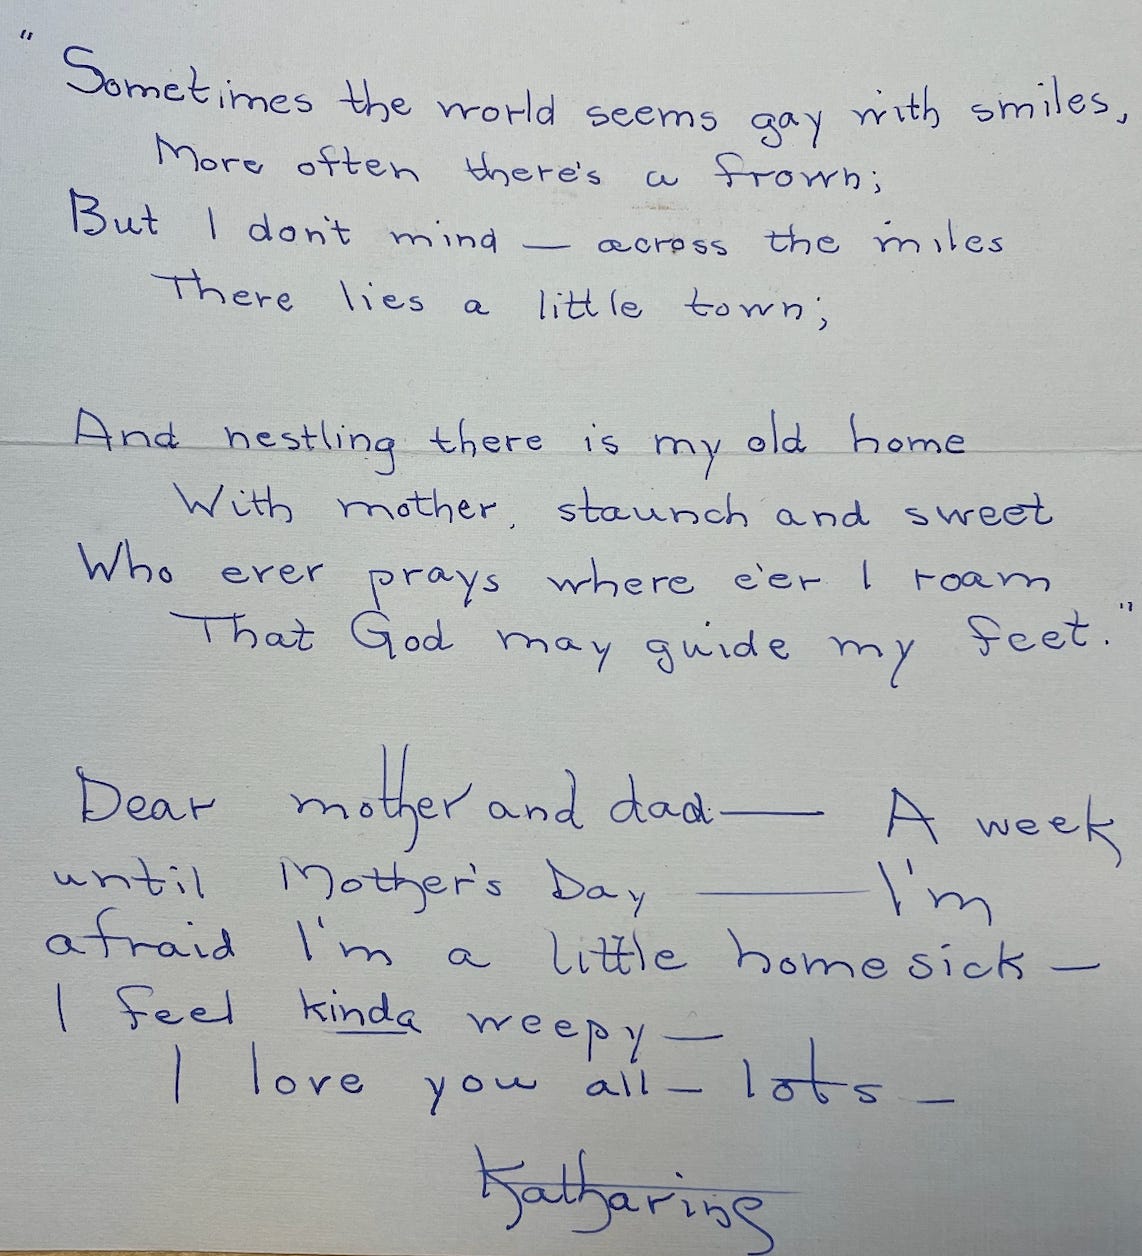 "Sometimes the world seems gay with smiles,
More often there's a frown;
But I don't mind — across the miles
There lies a little town;
And nestling there is my old home
With mother, staunch and sweet
Who ever prays where e'er I roam
That God may guide my feet."
Dear mother and dad — A week
until Mother's Day — I'm
afraid I'm a little homesick —
I feel kinda weepy —
I love you all — lots —
Katharine